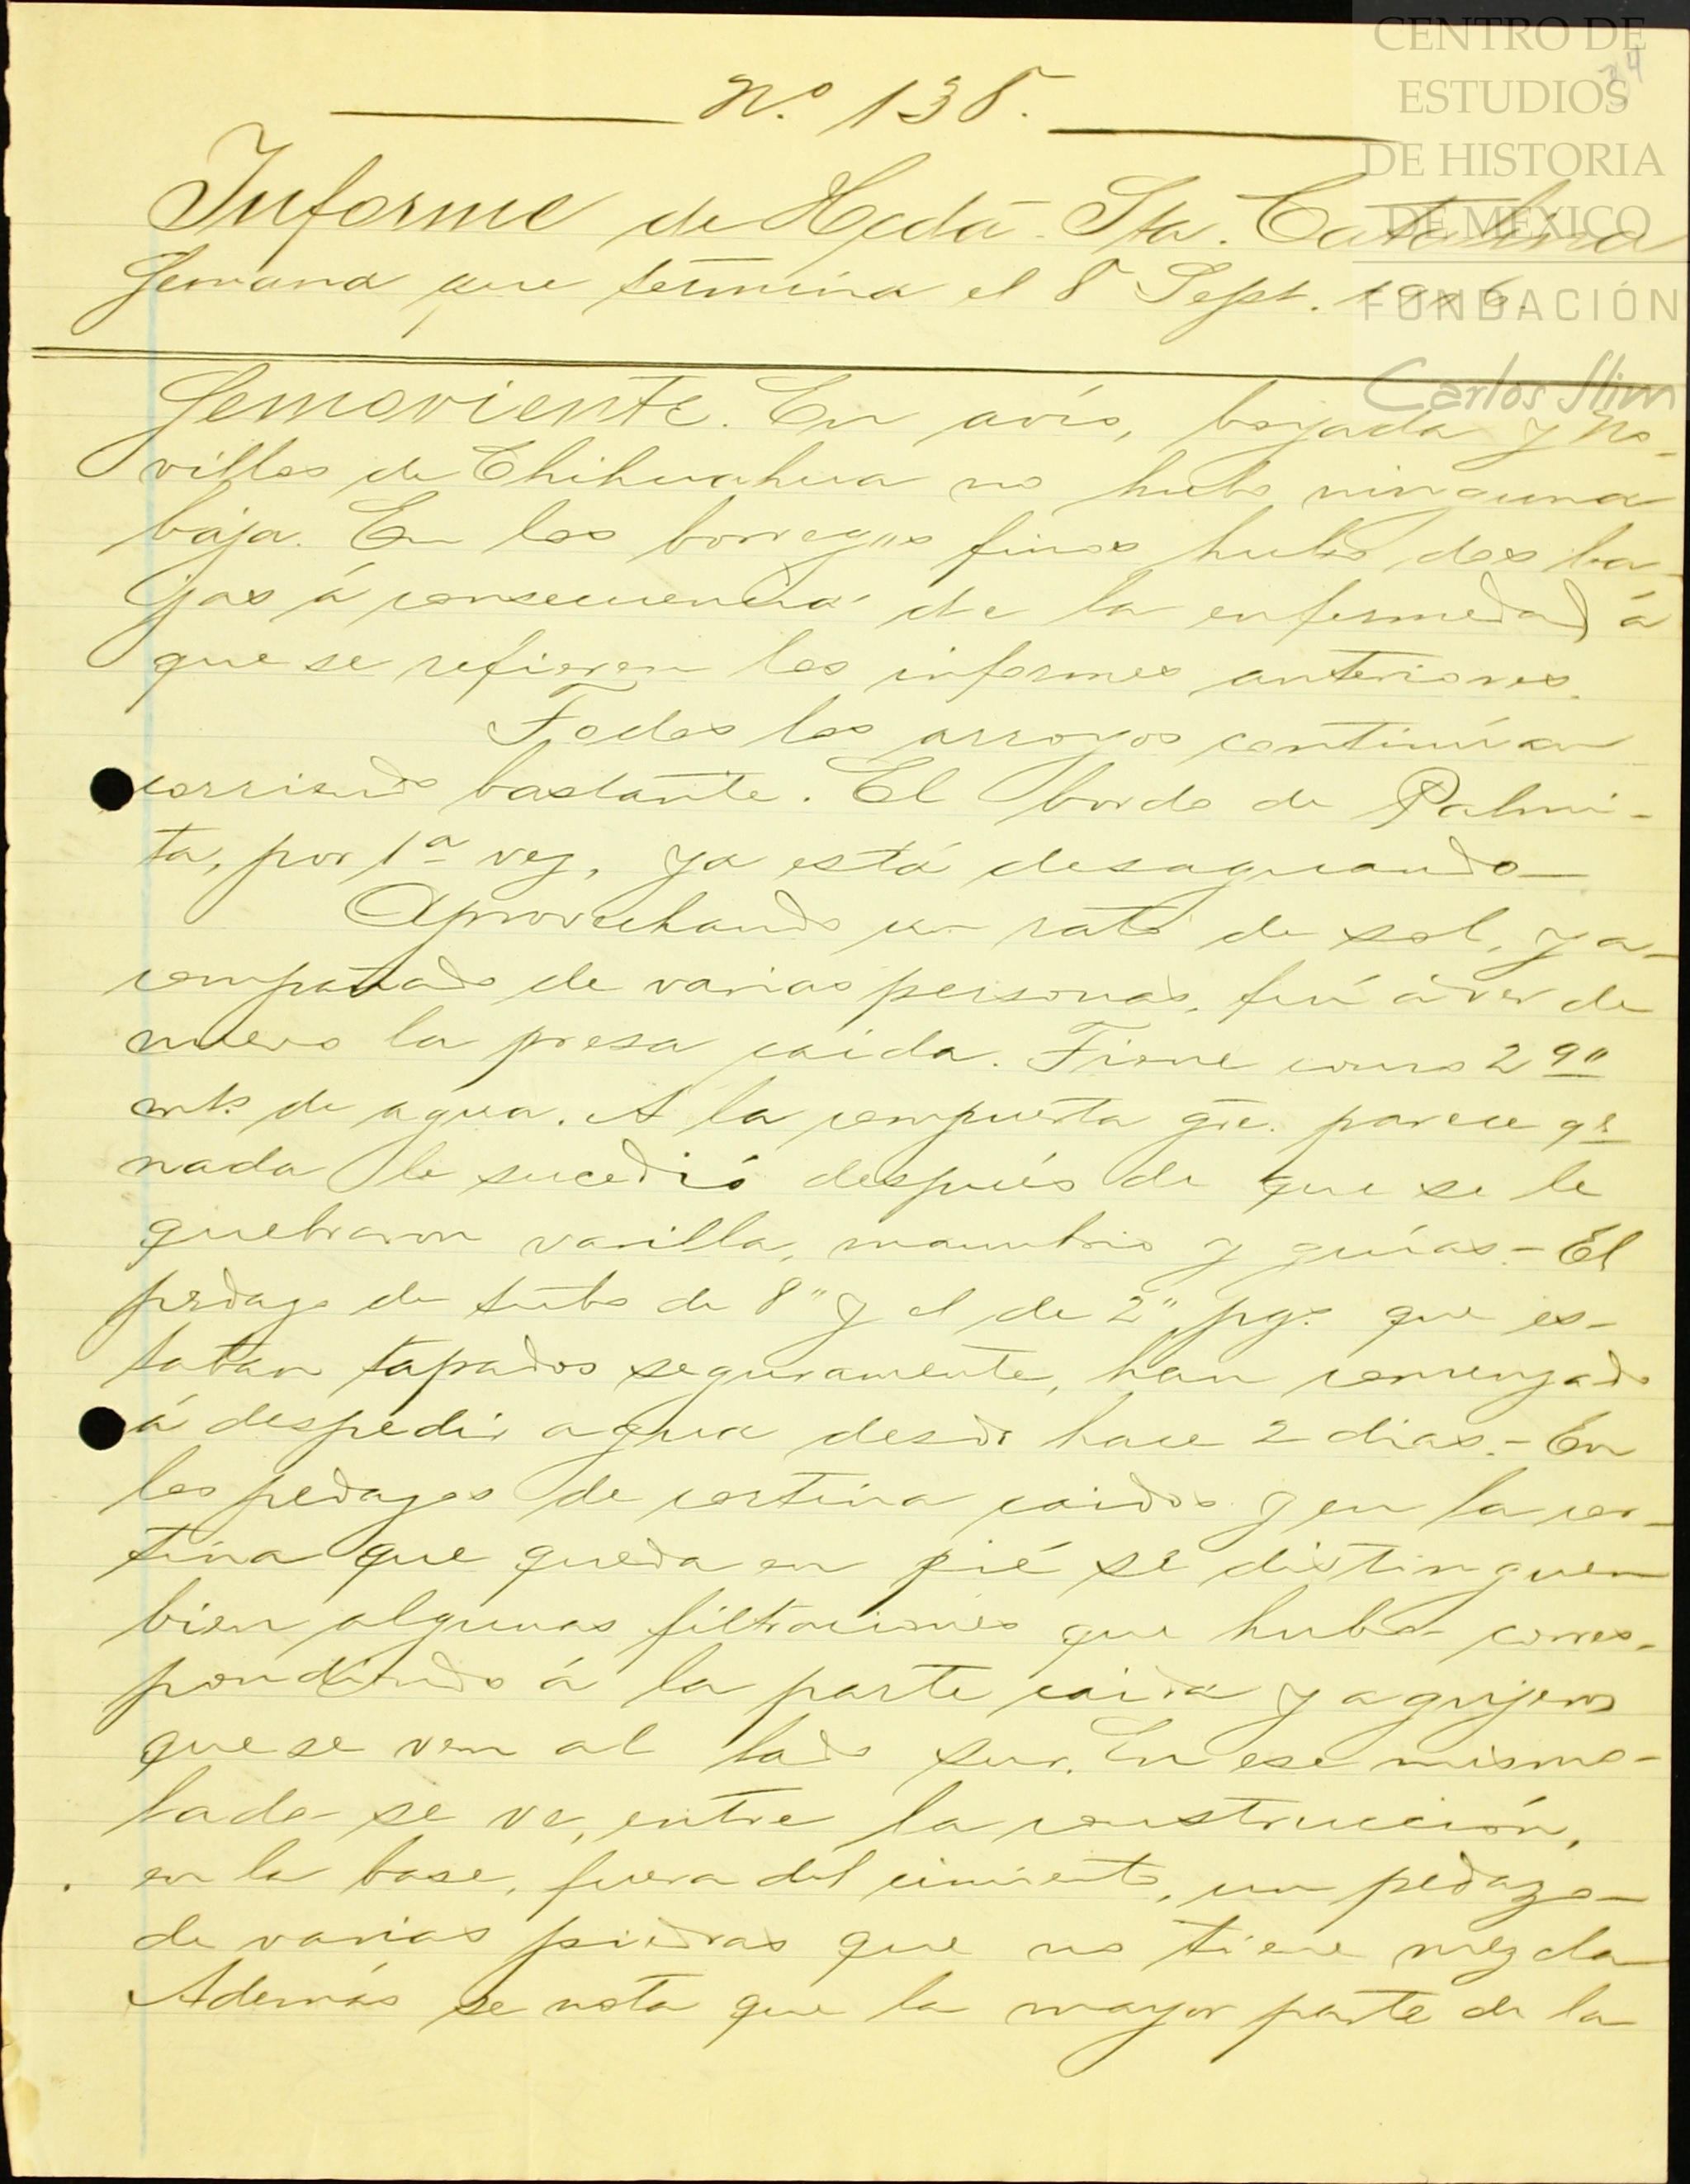 CENTRO DE
ESTUDIOS
DE HISTORIA
DE MÉXICO
FUNDACIÓN
Carlos Slim
Nº. 138.
Informe de Hcda. Sta. Catalina
Semana que termina el 8 Sept. 1906.
Semoviente. En avío, boyada y no-
villos de Chihuahua no hubo ninguna
baja. En los borregos finos hubo dos ba-
jas á consecuencia de la enfermedad á
que se refieren los informes anteriores.
Todos los arroyos continúan
corriendo bastante. El bordo de Palmi-
ta, por 1ª vez, ya está desaguando
Aprovechando un rato de sol, y a-
compañado de varias personas, fuí á ver de
nuevo la presa caida. Tiene como 2
mts. de agua. A la compuerta gde. parece qe
nada le sucedió después de que se le
quebraron varilla, manubrio y guías.- El
pedazo de tubo de 8" y el de 2" pgs. que es-
taban tapados seguramente, han comenzado
á despedir agua desde hace 2 dias.- En
los pedazos de cortina caidos y en la cor-
tina que queda en pié se distinguen
bien algunas filtraciones que hubo corres-
pondiendo á la parte caida y agujeros
que se ven al lado sur. En ese mismo
lado se ve, entre la construcción,
en la base, fuera del cimiento, un pedazo
de varias piedras que no tiene mezcla
Además se nota que la mayor parte de la